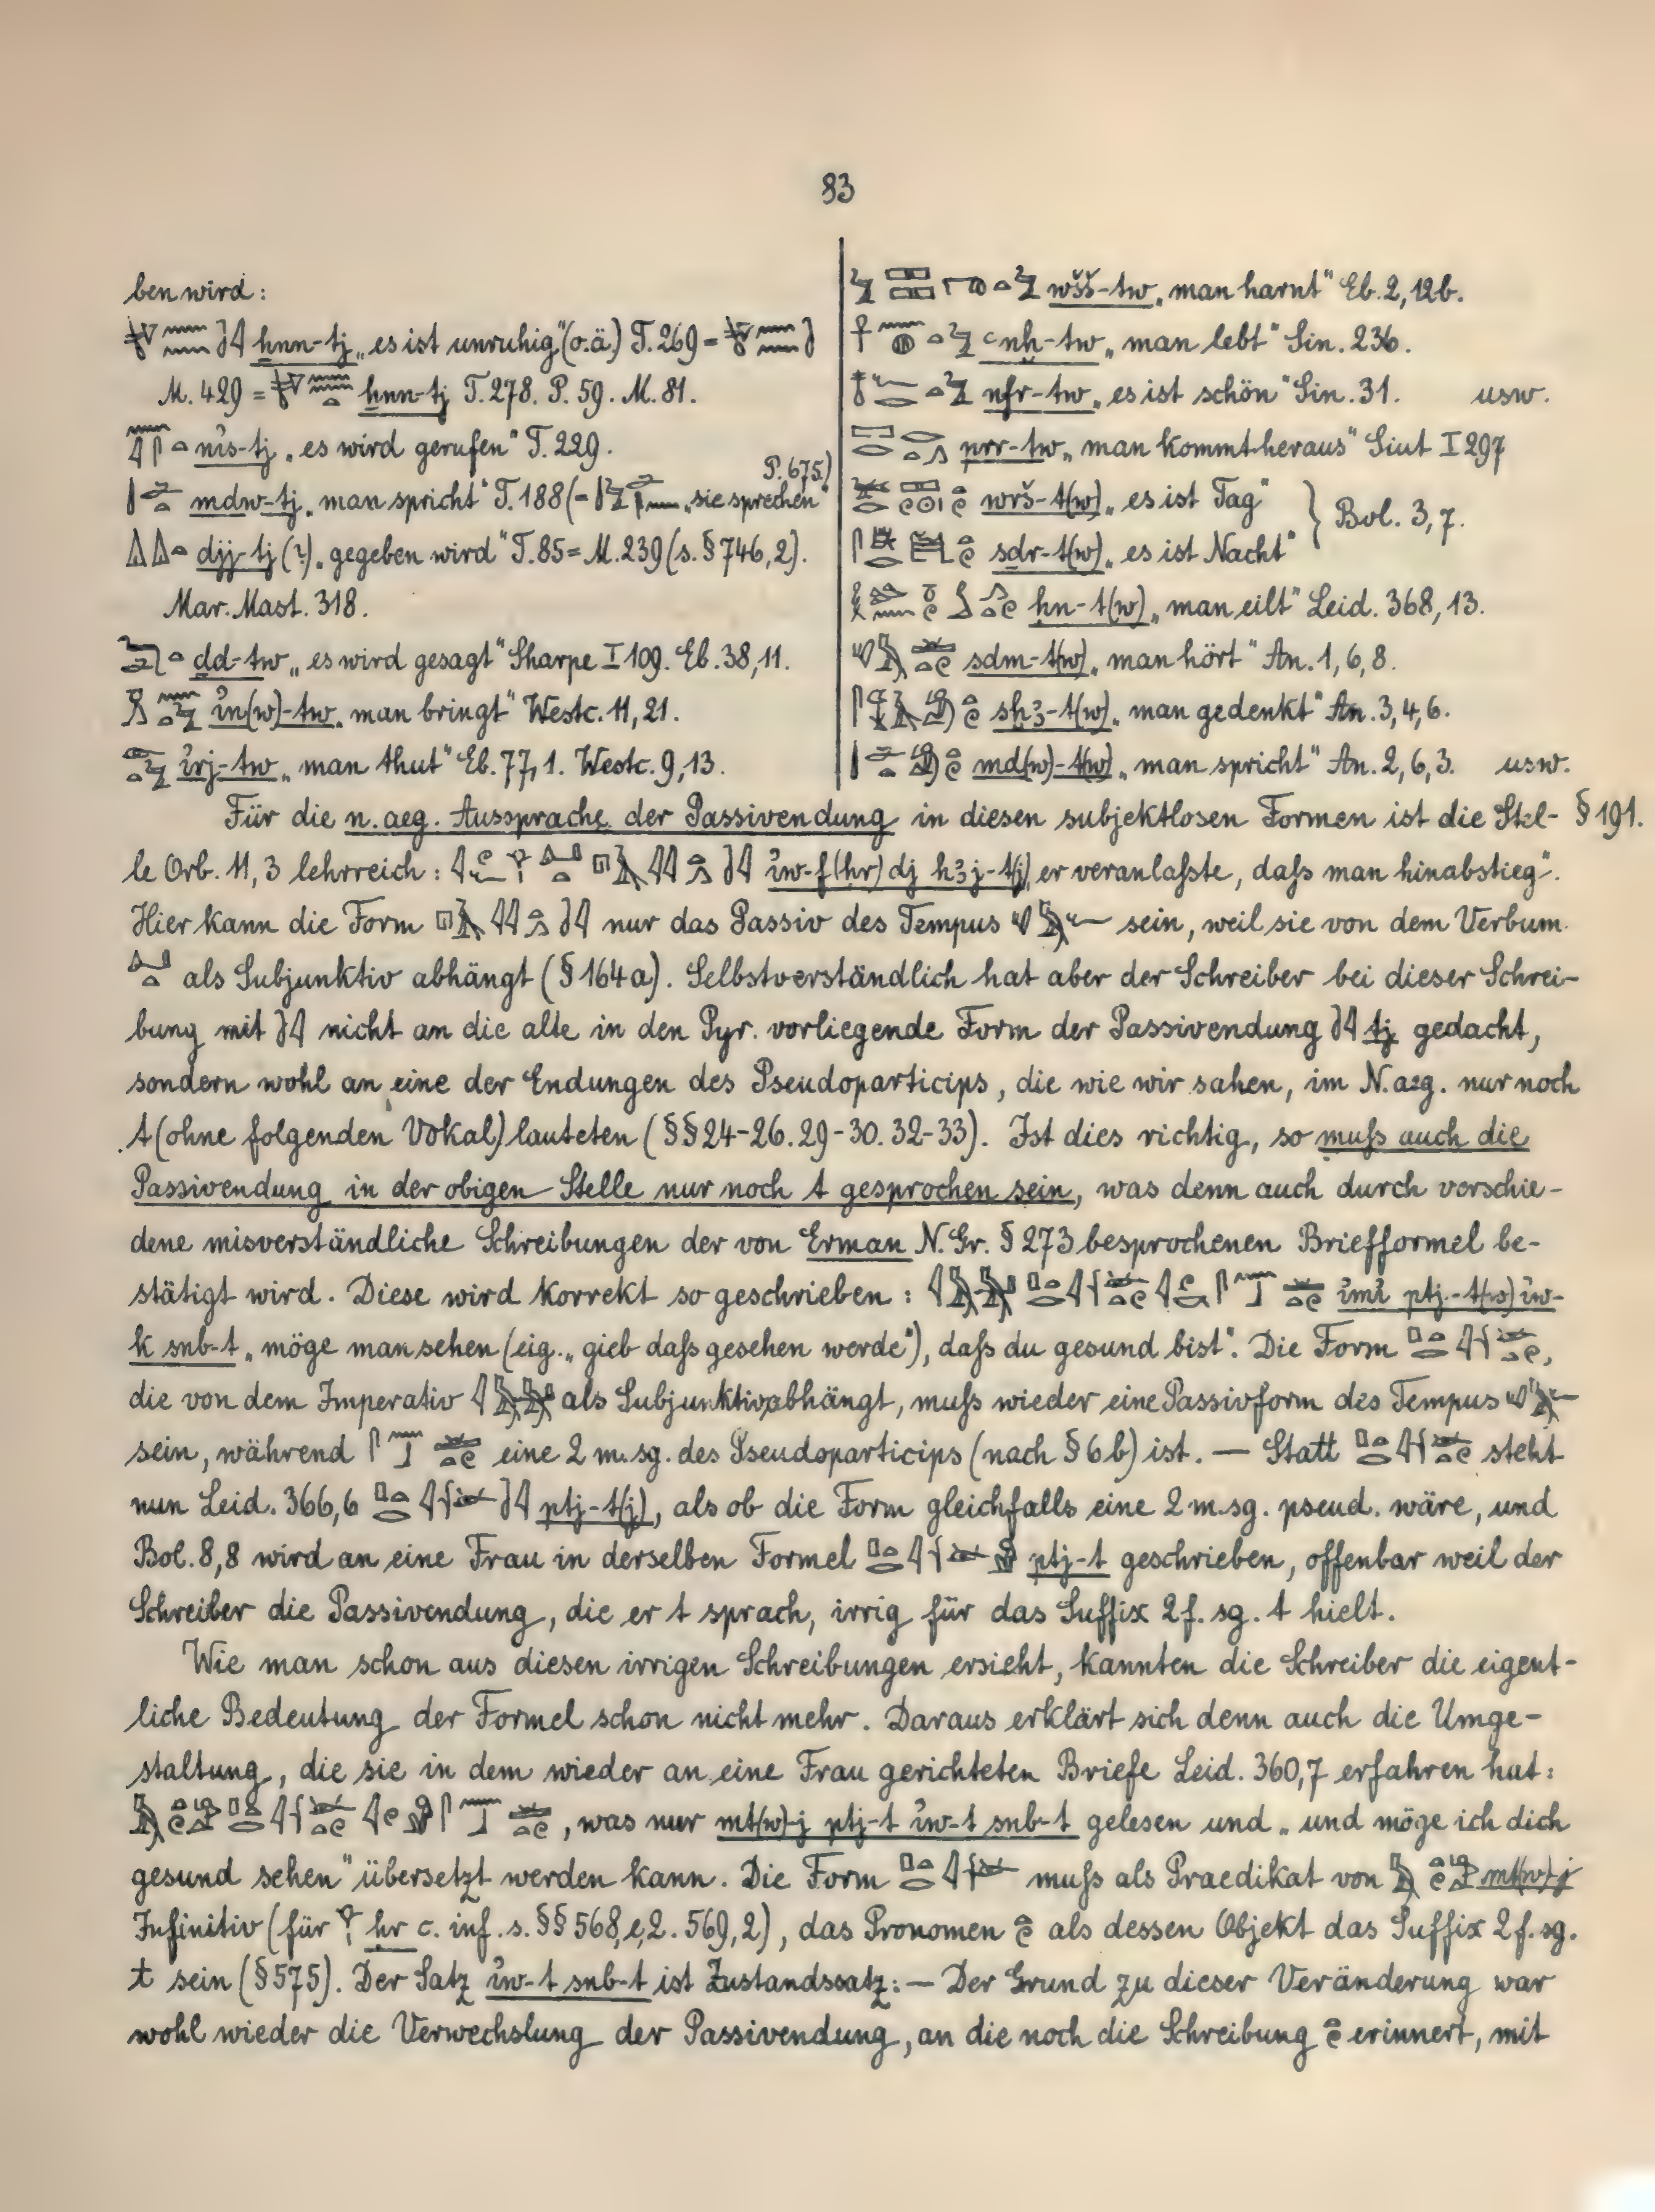 83
ben wird:
ẖnn-tj „es ist unruhig“ (o.ä.) T. 269 =
M. 429 = ẖnn-tj T. 278. P. 59. M. 81.
nı͗s-tj „es wird gerufen“ T. 229.
mdw-tj „man spricht“ T. 188 (= „sie sprechen“ P. 675.)
djj-tj (?) „gegeben wird“ T. 85 = M. 239 (s. § 746, 2).
Mar. Mast. 318.
ḏd-tw „es wird gesagt“ Sharpe I 109. Eb. 38, 11.
ı͗n(w)-tw „man bringt“ Westc. 11, 21.
ı͗rj-tw „man thut“ Eb. 77, 1. Westc. 9, 13.
wšš-tw „man harnt“ Eb. 2, 12b.
ꜥnḫ-tw „man lebt“ Sin. 236.
nfr-tw „es ist schön“ Sin. 31. usw.
prr-tw „man kommt heraus“ Siut I 297
wrš-t(w) „es ist Tag“ } Bol. 3, 7.
sḏr-t(w) „es ist Nacht“
hn-t(w) „man eilt“ Leid. 368, 13.
sḏm-t(w) „man hört“ An. 1, 6, 8.
sḫꜣ-t(w) „man gedenkt“ An. 3, 4, 6.
md(w)-t(w) „man spricht“ An. 2, 6, 3. usw.
Für die n. aeg. Aussprache der Passivendung in diesen subjektlosen Formen ist die Stel- § 191.
le Orb. 11, 3 lehrreich: ı͗w-f (ḥr) dj hꜣj-t(j) „er veranlaßte, daß man hinabstieg“.
Hier kann die Form nur das Passiv des Tempus sein, weil sie von dem Verbum
als Subjunktiv abhängt (§ 164a). Selbstverständlich hat aber der Schreiber bei dieser Schrei-
bung mit nicht an die alte in den Pyr. vorliegende Form der Passivendung tj gedacht,
sondern wohl an eine der Endungen des Pseudoparticips, die wie wir sahen, im N.aeg. nur noch
t (ohne folgenden Vokal) lauteten (§§ 24-26. 29-30. 32-33). Ist dies richtig, so muß auch die
Passivendung in der obigen Stelle nur noch t gesprochen sein, was denn auch durch verschie-
dene misverständliche Schreibungen der von Erman N. Gr. § 273 besprochenen Briefformel be-
stätigt wird. Diese wird korrekt so geschrieben: ı͗mı͗ ptj-t(w) ı͗w-
k snb-t „möge man sehen (eig. „gieb daß gesehen werde“), daß du gesund bist“. Die Form ,
die von dem Imperativ als Subjunktiv abhängt, muß wieder eine Passivform des Tempus
sein, während eine 2 m. sg. des Pseudoparticips (nach § 6b) ist. — Statt steht
nun Leid. 366, 6 ptj-t(j), als ob die Form gleichfalls eine 2 m. sg. pseud. wäre, und
Bol. 8, 8 wird an eine Frau in derselben Formel ptj-t geschrieben, offenbar weil der
Schreiber die Passivendung, die er t sprach, irrig für das Suffix 2 f. sg. t hielt.
Wie man schon aus diesen irrigen Schreibungen ersieht, kannten die Schreiber die eigent-
liche Bedeutung der Formel schon nicht mehr. Daraus erklärt sich denn auch die Umge-
staltung, die sie in dem wieder an eine Frau gerichteten Briefe Leid. 360, 7 erfahren hat:
, was nur mt(w)-j ptj-t ı͗w-t snb-t gelesen und „und möge ich dich
gesund sehen“ übersetzt werden kann. Die Form muß als Praedikat von mt(w)-j
Infinitiv (für ḥr c. inf. s. §§ 568, e, 2. 569, 2), das Pronomen als dessen Objekt das Suffix 2 f. sg.
t sein (§ 575). Der Satz ı͗w-t snb-t ist Zustandssatz. — Der Grund zu dieser Veränderung war
wohl wieder die Verwechslung der Passivendung, an die noch die Schreibung erinnert, mit